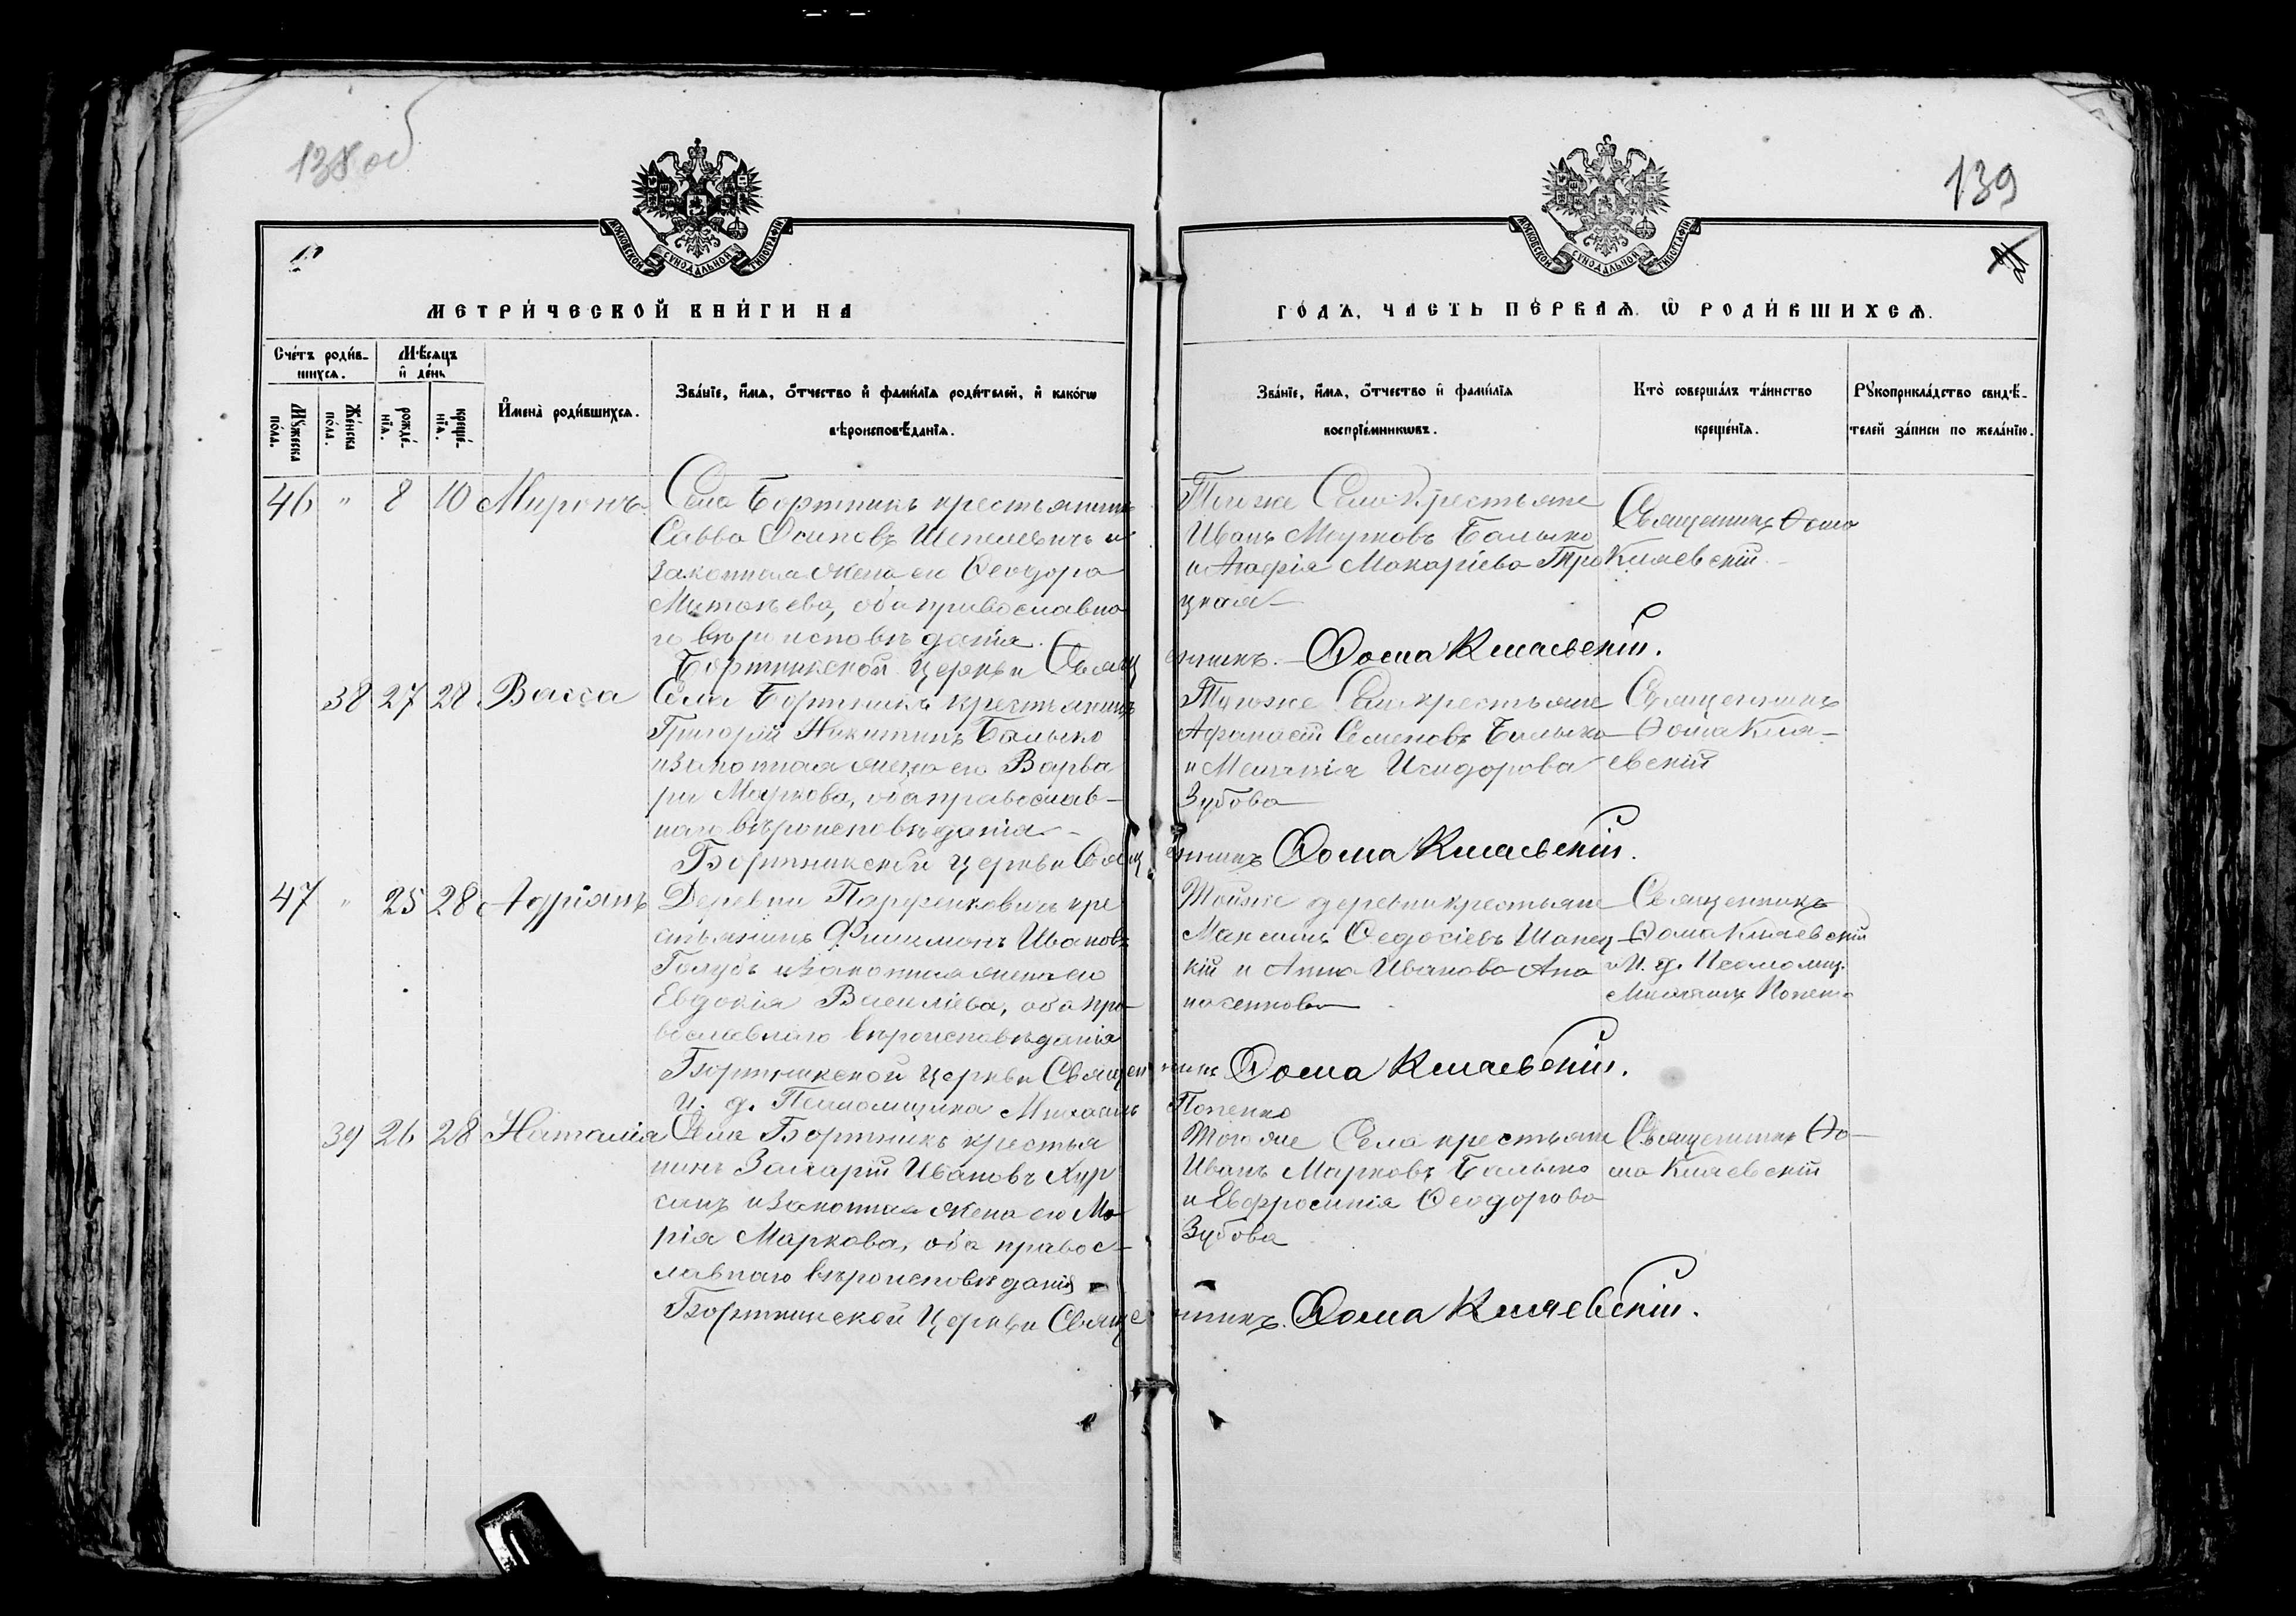 138 об
139
МОСКОВСКОЙ СѴНОДАЛЬНОЙ ТИПОГРАФІИ
МОСКОВСКОЙ СѴНОДАЛЬНОЙ ТИПОГРАФІИ
МЕТРИ́ЧЕСКОЙ КНИ́ГИ НА
ГО́ДЪ, ЧАСТЬ ПЕ́РВАѦ Ѿ РОДИ́ВШИХСѦ.
Сче́тъ роди́в-
шихсѧ.
Мѣсѧцъ
и де́нь
Мꙋжеска по́ла.
Же́нска по́ла.
рожде́-
нїѧ.
креще́-
нїѧ.
Имена̀ роди́вшихсѧ.
Зва́нїе, и́мѧ, ѻ́тчество и фами́лїѧ роди́телей, и како́гѡ
вѣроисповѣ́данїѧ.
Зва́нїе, и́мѧ, ѻ́тчество и фами́лїѧ
воспрїе́мникѡвъ.
Кто̀ соверша́лъ та́инство
креще́нїѧ.
Рꙋкоприкла́дство свидѣ́-
телей за́писи по жела́нїю.
46 " 8 10 Миронъ
Села Бортникъ крестьянинъ
Савва Осиповъ Шепелевичъ и
законная жена его Ѳеодора
, оба православна
го вѣроисповѣданія.
Бортникской Церкви Свящ
енникъ. Ѳома Кмаевскій.
Тогоже Села Крестьяне
Иванъ Марковъ Балыко
и Агафія Макаріева Тро
цкая
Священникъ Ѳома
Кмаевскій
38 27 28 Васса
Села Бортникъ крестьянинъ
Григорій Никитинъ Балыко
и законная жена его Варва
ра Маркова, оба православ-
наго вѣроисповѣданія
Бортникской Церкви Свящ
енникъ Ѳома Кмаевскій.
Тогоже Села крестьяне
Афанасій Семеновъ Балыко
и Меланія Исидорова
Зубова
Священникъ
Ѳома Кма-
евскій
47 " 25 28 Адріанъ
Деревни Парфенковичъ кре
стьянинъ Филимонъ Ивановъ
Голубъ и законная жена его
Евдокія Василіева, оба пра
вославнаго вѣроисповѣданія
Бортникской Церкви Священ
никъ Ѳома Кмаевскій.
И. д. Псаломщика Михаилъ
Попенко
Тойже деревни крестьяне
Максимъ Ѳедосіевъ Шапец
кій и Анна Иванова Апа
насенкова
Священникъ
Ѳома Кмаевскій
и И. д. Псаломщ.
Михаилъ Попенко
39 26 28 Наталія
Села Бортникъ крестья
нинъ Захарій Ивановъ Хур
санъ и законная жена его Ма
рія Маркова, оба правос-
лавнаго вѣроисповѣданія
Бортникской Церкви Свяще
нникъ. Ѳома Кмаевскій.
Тогоже Села крестьяне
Иванъ Марковъ Балыко
и Евфросинія Ѳеодорова
Зубова
Священникъ Ѳо-
ма Кмаевскій